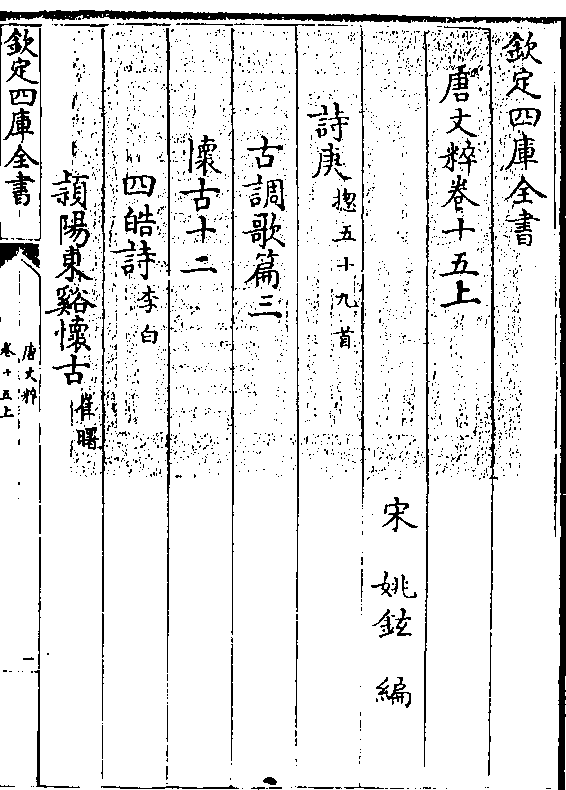 欽定四庫全書
唐文粹卷十五上
宋 姚鉉 編
詩庚 揔五十九首
古調歌篇三
懷古十二
四皓詩 李白
潁陽東谿懷古 崔曙
欽定四庫全書
唐文粹
卷十五上
一